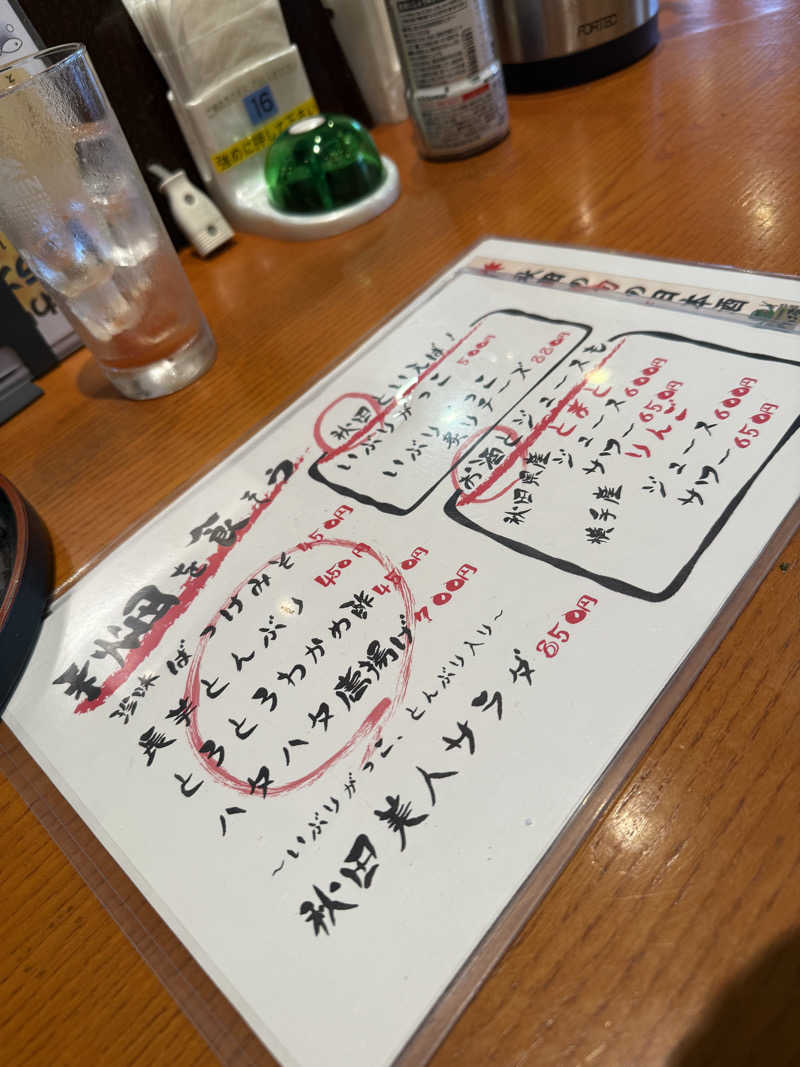 16
強めに押して下さい
FORTEC
秋田の旬の日本酒
秋田といえば!
いぶりがっこ 500円
いぶりがっこ
炙りチーズ 880円
お酒とジュースも
秋田県産 とまと
ジュース 600円
サワー 650円
横手産 りんご
ジュース 600円
サワー 650円
秋田を食そう
珍味 ばっけみそ 450円
長芋とんぶり 450円
とろとろわかめ酢 480円
ハタハタ唐揚げ 700円
~いぶりがっこ、とんぶり入り~
秋田美人サラダ 850円